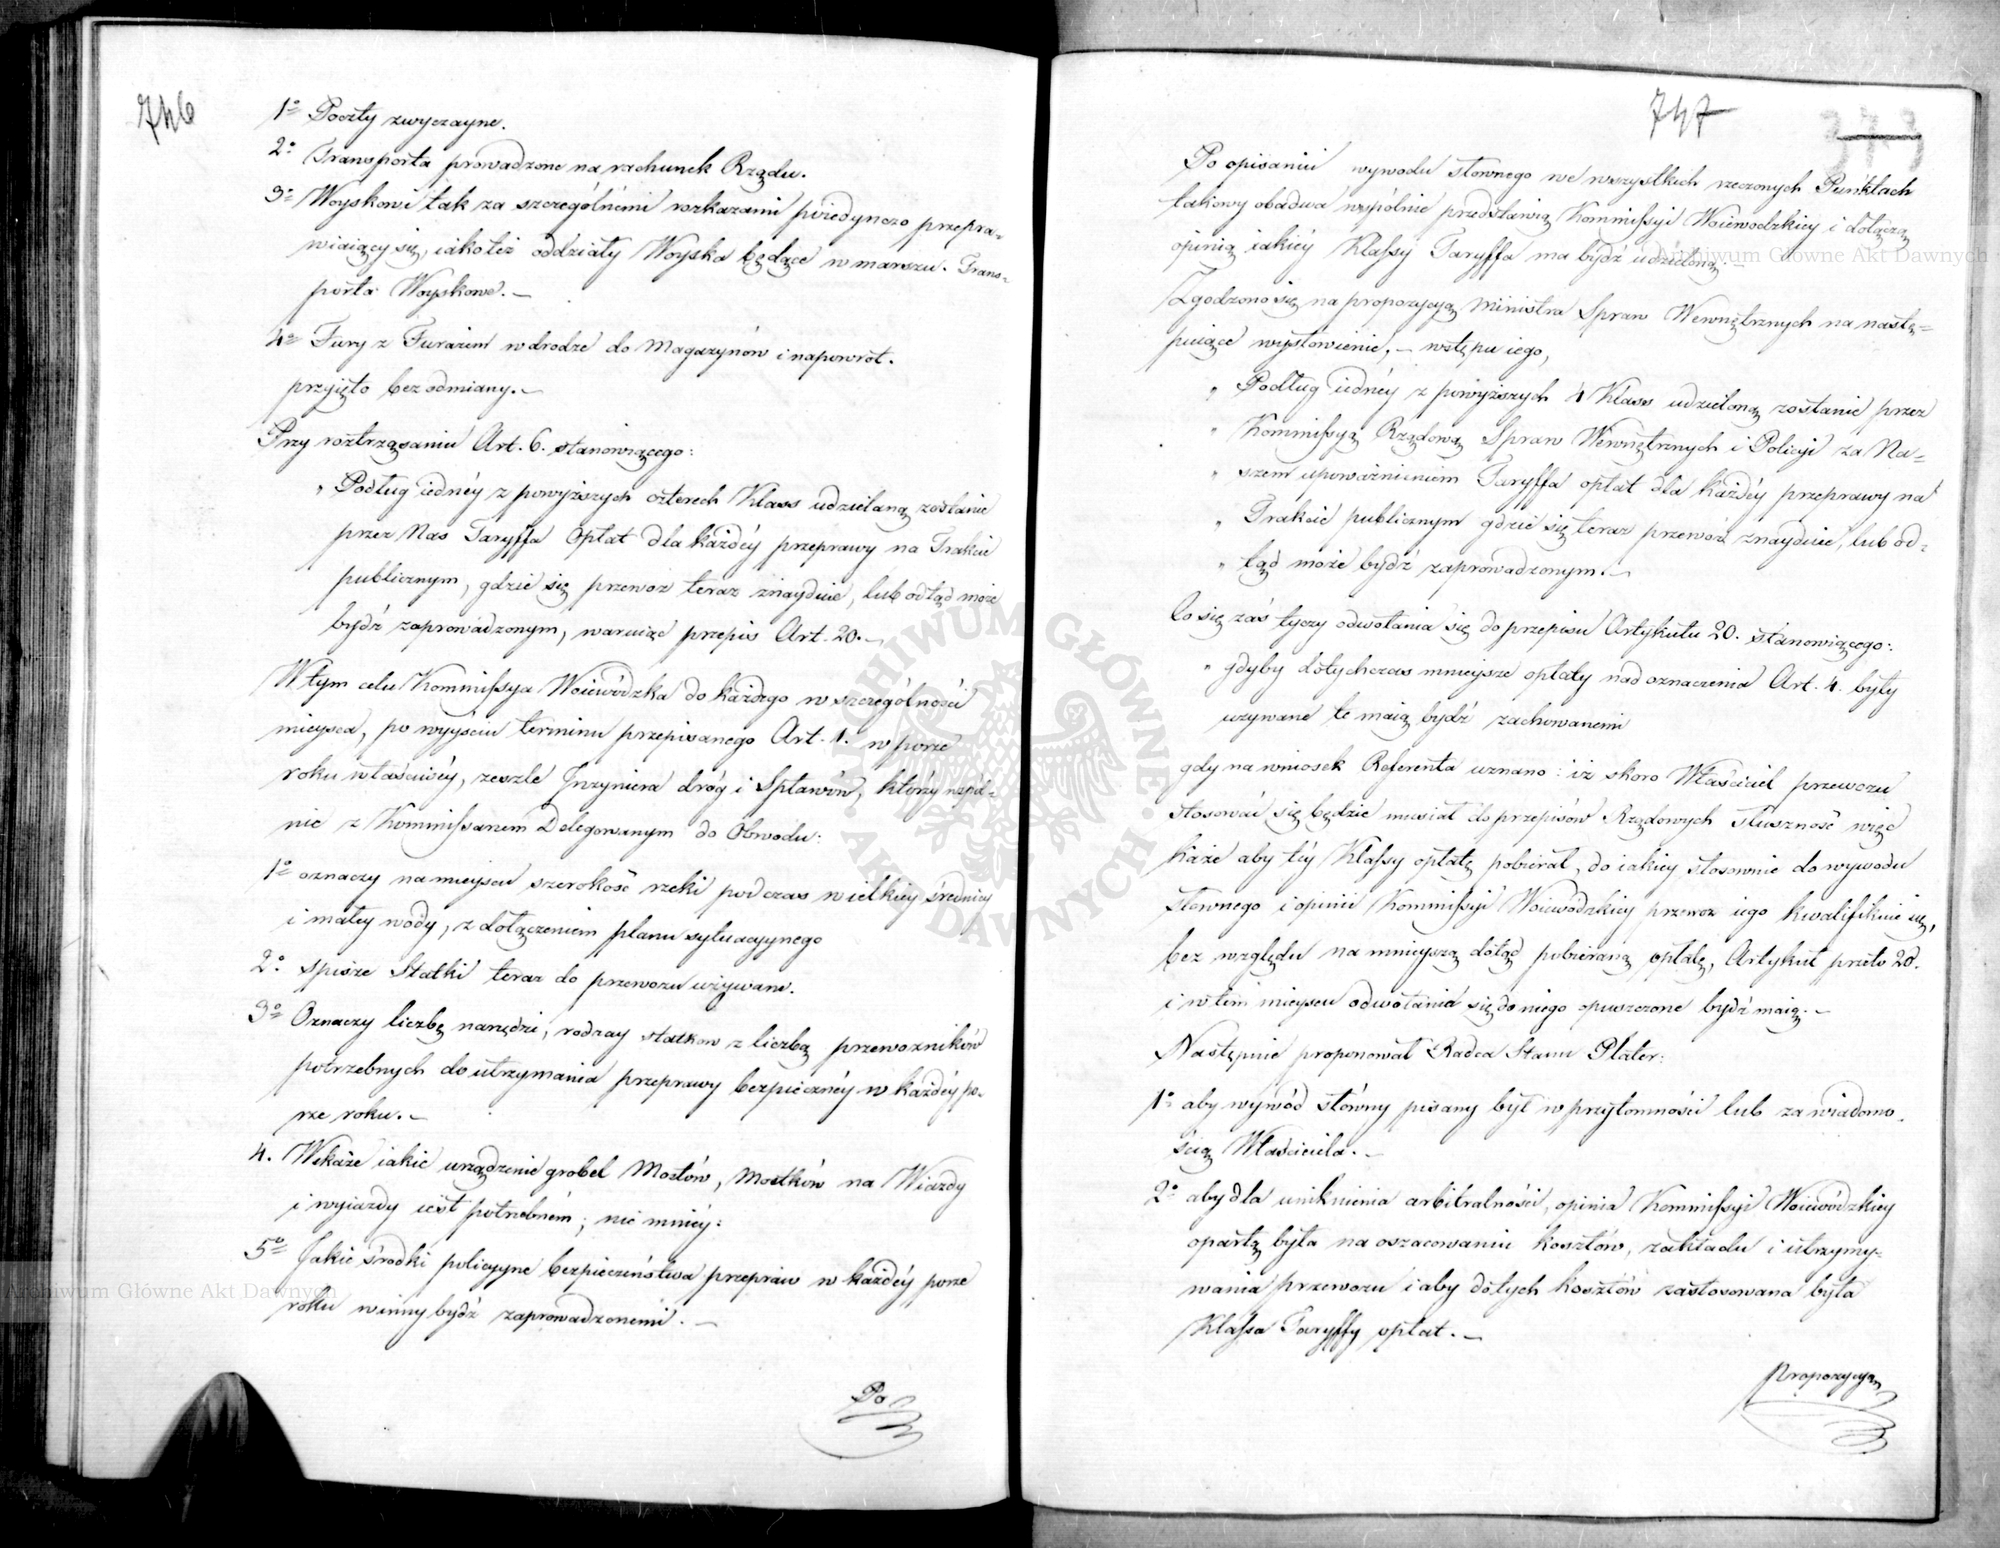 746
1º Poczty zwyczayne.
2º Transporta prowadzone na rachunek Rządu.
3º Woyskowi tak za szczególnémi rozkazami poiedynczo przepra-
wiaiący się, iako też oddziały Woyska będące w marszu. Trans-
porta Woyskowe. —
4º Fury z Furażem w drodze do Magazynów i napowrót.
przyięto bez odmiany. —
Przy roztrząsaniu Art. 6. stanowiącego:
„ Podług iednéy z powyższych czterech Klass udzielaną zostanie
przez Nas Taryffa Opłat dla każdéy przeprawy na Trakcie
publicznym, gdzie się przewoz teraz znayduie, lub odtąd może
bydź zaprowadzonym, waruiąc przepis Art. 20. —
W tym celu Kommissya Woiewódzka do każdego w szczególności
mieysca, po wyyściu terminu przepisanego Art. 1. w porze
roku właściwéy, zeszle Inżyniera dróg i Spławów, który wspól-
nie z Kommissarzem Delegowanym do Obwodu:
1º oznaczy na mieyscu szerokość rzeki podczas wielkiey średniey
i małey wody, z dołączeniem planu sytuacyynego
2º spisze Statki teraz do przewozu używane.
3º Oznaczy liczbę narzędzi, rodzay statkow z liczbą przewozników
potrzebnych do utrzymania przeprawy bezpiecznéy w każdéy po-
rze roku. —
4. Wskaże iakie urządzenie grobel Mostów, Mostków na Wiazdy
i wyiazdy iest potrzebném; nie mniéy:
5º Jakie środki policyyne bezpieczeństwa przepraw w każdéy porze
roku winny bydź zaprowadzonemi. —
Po
747
373
Po opisaniu wywodu słownego we wszystkich rzeczonych Punktach
takowy obadwa wspólnie przedstawią Kommissyi Woiewodzkiey i dołączą
opinią iakiéy Klassy Taryffa ma bydź udzieloną. —
Zgodzono się na propozycyą Ministra Spraw Wewnętrznych na nastę-
puiące wysłowienie, — wstępu iego,
„ Podług iednéy z powyższych 4 Klass udzieloną zostanie przez
„ Kommissyą Rządową Spraw Wewnętrznych i Policyi za Na-
„ szem upoważnieniem Taryffa opłat dla każdéy przeprawy na
„ Trakcie publicznym gdzie się teraz przewóz znayduie, lub od-
„ tąd może bydź zaprowadzonym. —
Co się zaś tyczy odwołania się do przepisu Artykułu 20. stanowiącego:
„ gdyby dotychczas mnieysze opłaty nad oznaczenia Art. 4. były
używane te maią bydź zachowanemi
gdy na wniosek Referenta uznano: iż skoro Właściciel przewozu
stosować się będzie musiał do przepisów Rządowych słuszność więc
każe aby téy Klassy opłatę pobierał, do iakiey stosownie do wywodu
słownego i opinii Kommissyi Woiewódzkiey przewoz iego kwalifikuie się,
bez względu na mnieyszą dotąd pobieraną opłatę, Artykuł przeto 20.
i w tem mieyscu odwołania się do niego opuszczone bydź maią. —
Następnie proponował Radca Stanu Plater:
1º aby wywód słówny pisany był w przytomności lub za wiadomo-
ścią Właściciela. —
2º aby dla uniknienia arbitralności, opinia Kommissyi Woiewódzkiey
opartą była na oszacowaniu kosztów, zakładu i utrzymy-
wania przewozu i aby do tych kosztów zastosowana była
Klassa Taryffy opłat. —
Propozycyą
Archiwum Główne Akt Dawnych
Archiwum Główne Akt Dawnych
ARCHIWUM GŁÓWNE AKT DAWNYCH